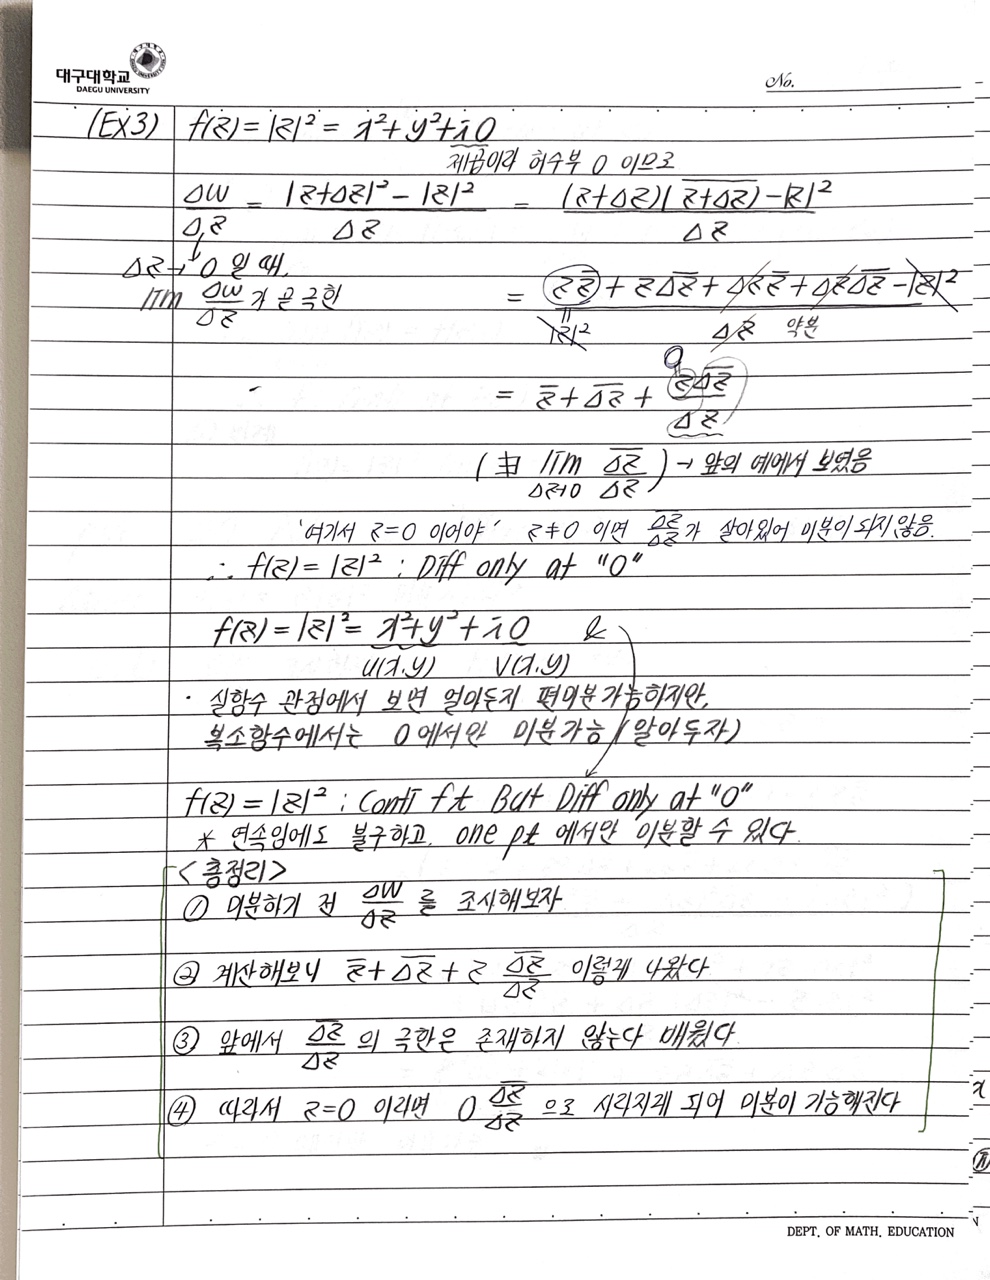 대구대학교
DAEGU UNIVERSITY
No.
(Ex3) f(z) = |z|² = x²+y²+i0
제곱이라 허수부 0 이므로
Δw/Δz = (|z+Δz|² - |z|²)/Δz = ((z+Δz)(z̅+̅Δ̅z̅) - |z|²)/Δz
Δz → 0 일 때,
lim Δw/Δz 가 곧 극한
= (zz̅ + zΔ̅z̅ + Δzz̅ + ΔzΔ̅z̅ - |z|²)/Δz 약분
|z|²
0
= z̅ + Δ̅z̅ + zΔ̅z̅/Δz
(∄ lim Δz→0 Δ̅z̅/Δz) → 앞의 예에서 보였음
'여기서 z=0 이어야' z≠0 이면 Δ̅z̅/Δz 가 살아있어 미분이 되지않음.
∴ f(z) = |z|² : Diff only at "0"
f(z) = |z|² = x²+y²+i0
u(x,y) v(x,y)
· 실함수 관점에서 보면 얼마든지 편미분가능하지만,
복소함수에서는 0에서만 미분가능 (알아두자)
f(z) = |z|² : Conti ft But Diff only at "0"
* 연속임에도 불구하고, one pt 에서만 미분할 수 있다.
<총정리>
① 미분하기 전 Δw/Δz 를 조사해보자
② 계산해보니 z̅ + Δ̅z̅ + z Δ̅z̅/Δz 이렇게 나왔다
③ 앞에서 Δ̅z̅/Δz 의 극한은 존재하지 않는다 배웠다.
④ 따라서 z=0 이라면 0 Δ̅z̅/Δz 으로 사라지게 되어 미분이 가능해진다
x
DEPT. OF MATH. EDUCATION